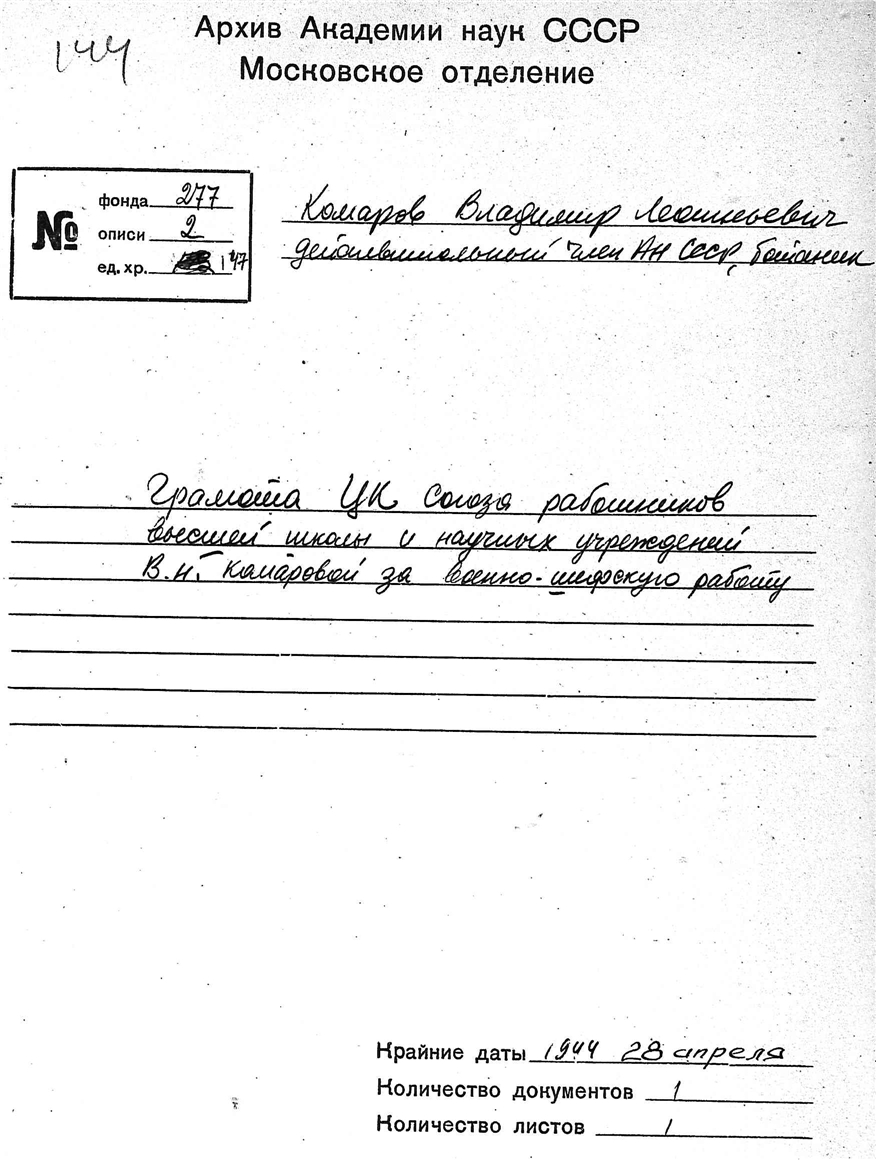 Архив Академии наук СССР
144
Московское отделение
№
фонда 277
описи 2
ед. хр. 147
Комаров Владимир Леонтьевич
действительный член АН СССР, ботаник
Грамота ЦК Союза работников
высшей школы и научных учреждений
В.Н. Комаровой за военно-шефскую работу
Крайние даты 1944 28 апреля
Количество документов 1
Количество листов 1